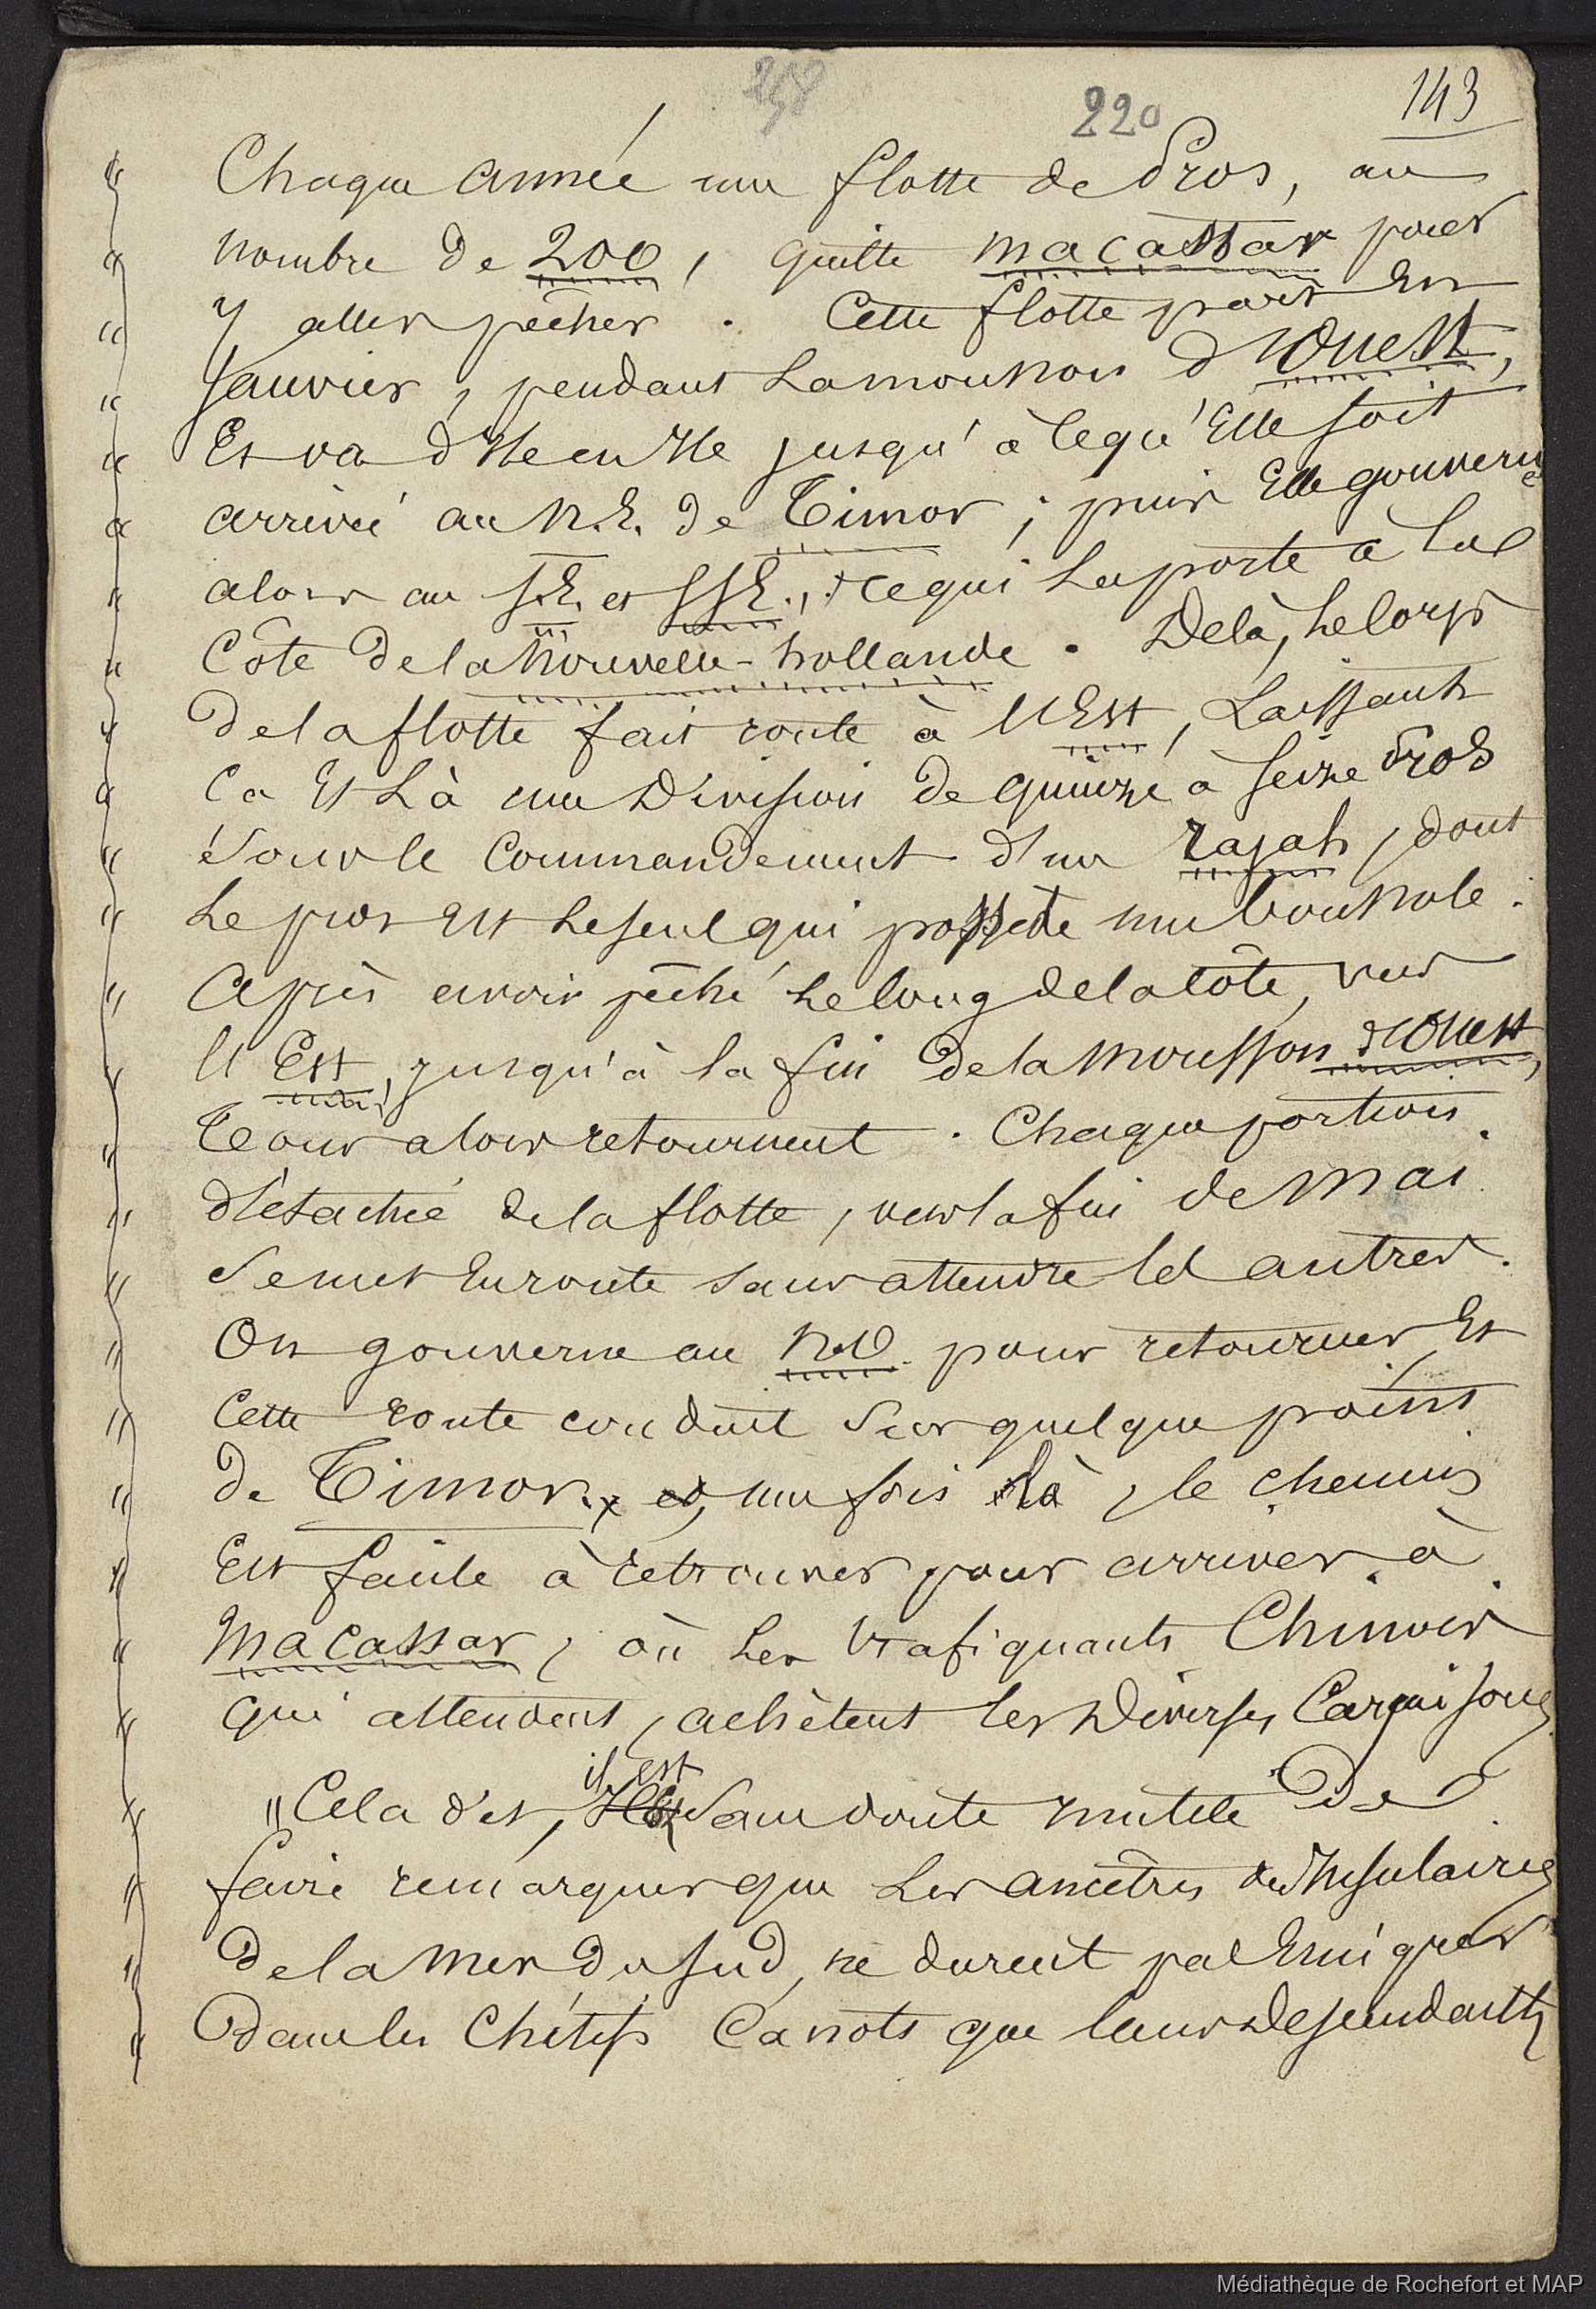 258
220
143
" Chaque année une flotte de Pros, au
" nombre de 200, quitte Macassar pour
" y aller pêcher. Cette flotte part en
" Janvier, pendant la mousson d'Ouest,
" Et va d'Ile en Ile jusqu'à ce qu'Elle soit
" arrivée au N.E. de Timor ; puis Elle gouverne
" alors au S.E. et SSE., ce qui la porte à la
" Côte de la Nouvelle-hollande. De là, le corps
" de la flotte fait route à l'Est, Laissant
" Ca Et Là une Division de quinze à seize Pros
" Sous le Commandement d'un rajah, dont
" le pros Est le seul qui possède une boussole.
" Après avoir pêché le long de la côte, vers
" l'Est, jusqu'à la fin de la Mousson d'Ouest,
" Tous alors retournent. Chaque portion
" détachée de la flotte, vers la fin de Mai
" Se met En route sans attendre les autres.
" On gouverne au N.O. pour retourner Et
" Cette route conduit Sur quelque point
" de Timor, et, une fois là, le chemin
" Est facile à retrouver pour arriver à
" Macassar, où les trafiquants Chinois
" qui attendent, achètent les Diverses Cargaisons
" " Cela dit, il est Sans doute inutile De
" faire remarquer que les ancêtres des Insulaires
" De la Mer du Sud, ne durent pas Emigrer
" Dans les Chétifs Canots que leurs Descendants
Médiathèque de Rochefort et MAP